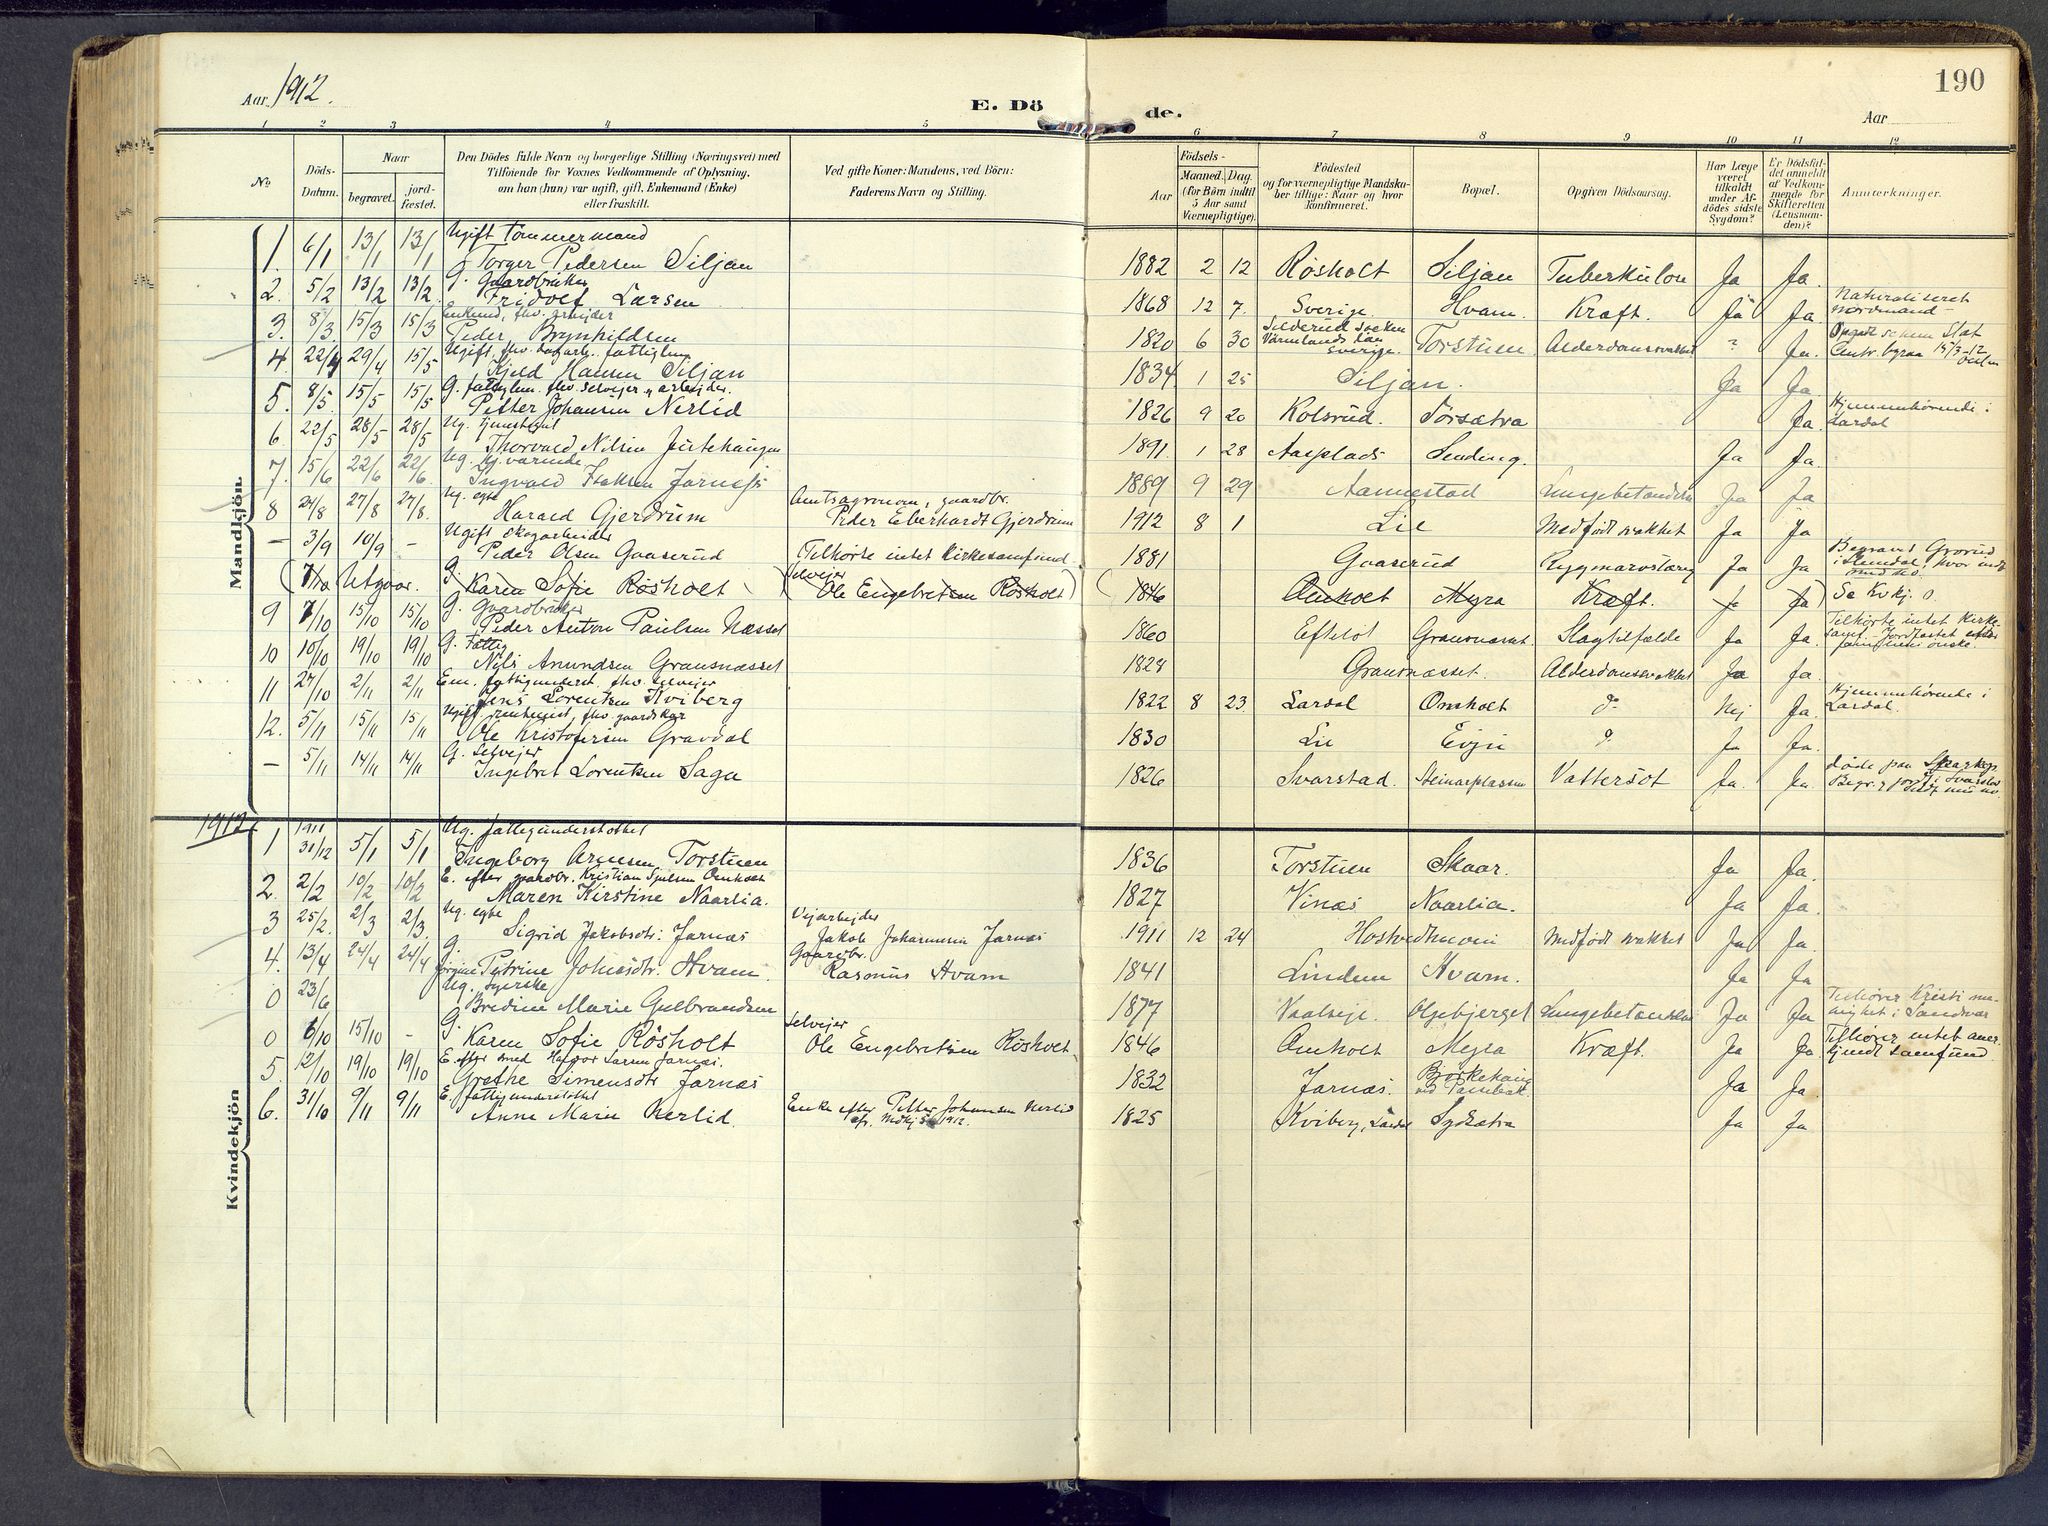 190
Aar 1912.
E. Dö de.
Aar
1 2 3 4 5 6 7 8 9 10 11 12
No
Döds-Datum.
Naar
begravet.
jordfæstet.
Den Dödes fulde Navn og borgerlige Stilling (Næringsvei) med Tilföiende for Voxnes Vedkommende af Oplysning, om han (hun) var ugift, gift, Enkemand (Enke) eller fraskilt.
Ved gifte Koner: Mandens, ved Börn: Faderens Navn og Stilling.
Födsels-
Aar
Maaned. Dag.
(for Börn indtil 5 Aar samt Værnepligtige).
Födested og for værnepligtige Mandskaber tillige: Naar og hvor konfirmeret.
Bopæl.
Opgiven Dödsaarsag.
Har Læge været tilkaldt under Afdödes sidste Sygdom?
Er Dödsfaldet anmeldt af Vedkommende for Skifteretten (Lensmanden)?
Anmærkninger.
Mandkjön.
1. 6/1 13/1 13/1 Ugift tømmermand
Torger Pedersen Siljan 1882 2 12 Røsholt Siljan Tuberkulose Ja Ja.
2. 5/2 13/2 13/2 G. Gaardbruker
Fridolf Larsen 1868 12 7. Sverige. Hvam. Kræft. Ja Ja Naturaliseret nordmand
3. 8/3 15/3 15/3 Enkemd, fhv. arbejder
Peder Brynhildsen 1820 6 30 Värmlands län Sverige. Torstuen Alderdomssvakhet Ja.
4. 22/4 29/4 15/5 Ugift, fhv. dagarb. fattiglem
Kjeld Hansen Siljan 1834 1 25 Siljan. Ja Ja.
5. 8/5 15/5 15/5 G. fattiglem. fhv. selvejer, arbejder.
Petter Johansen Nerlid 1826 9 20 Kolsrud. Sørsætra Ja. Hjemmehørende i Lardal
6. 22/5 28/5 28/5 Ug. tjenestegut
Thorvald Nilsen Jutehaugen 1891. 1 28 Aasplads Ja Ja.
7. 15/6 22/6 22/6 Ug.
Ingvald Isaksen Jarnæs 1889 9 29 Aannestad Lungebetændelse Ja Ja
8 24/8 27/8 27/8. Ug. egte
Harald Gjerdrum Amtsagronom, gaardbr.
Peder Eberhardt Gjerdrum 1912 8 1 Lie Medfødt svakhet Ja Ja
– 3/9 10/9 – Ugift skogarbeider
Peder Olsen Gaaserud Tilhørte intet kirkesamfund 1881 Gaaserud Rygmarvstæring Ja Ja
(7/10 Utgaar. G. Karen Sofie Røsholt Selvejer
Ole Engebretsen Røsholt) (1846 Omholt Myra Kræft. Ja Ja) Se Kvkj. 0.
9 7/10 15/10 15/10 G. Gaardbruker
Peder Anton Paulsen Næsset 1860 Efteløt Gransnæset. Slagtilfælde Ja Ja. Tilhørte intet kirkesamf. Jordfæstet efter familiens ønske.
10 10/10 19/10 19/10 G. Fattig
Nils Amundsen Gransnæsset 1828 Gransnæsset. Alderdomssvakhet Ja Ja.
11 27/10 2/11 2/11 Em. fattigunderst. fhv. selvejer
Jens Lorentsen Kviberg 1822 8 23 Lardal Omholt do Nej Ja. Hjemmehørende i Lardal.
12. 5/11 15/11 15/11 Ugift, fhv. gaardskar
Ole Kristofersen Gravdal 1830 Lie Evju do Ja Ja.
– 5/11 14/11 14/11 G. selvejer
Ingebret Lorentsen Saga 1826 Svarstad. Steinarplassen Vattersot Ja. Ja.
Kvindekjön
1912
1 1911 31/12 5/1 5/1 Ug. fattigunderstøttet
Ingeborg Arnesen Torstuen 1836 Torstuen Skaar. Ja Ja.
2. 2/2 10/2 10/2 E. efter gaardbr. Kristian Omholt
Maren Kirstine Naarlia. 1827 Vinæs Naarlia. Ja Ja.
3 25/2. 2/3 2/3 Ug. egte
Sigrid Jakobsdtr. Jarnæs Vejarbejder
Jakob Johannesen Jarnæs 1911 12 24 Medfødt svakhet Ja Ja.
4. 13/4 24/4 24/4 G.
Petrine Johnsdtr. Hvam Gaardbr.
Rasmus Hvam 1841 Linden Hvam. Ja Ja
0 23/6 Ug. Syerske
Bredine Marie Gulbrandsen 1877 Lungebetændelse Ja Ja Tilhører Kristi menighet i Sandsvær
0 6/10 15/10 – G.
Karen Sofie Røsholt Selvejer
Ole Engebretsen Røsholt 1846 Omholt Myra Kræft. Ja Ja Tilhører intet anerkjendt samfund.
5. 12/10 19/10 19/10 E. efter smed Halvor Larsen Jarnæs.
Grethe Simensdtr. Jarnæs 1832 Jarnæs. Ja Ja.
6. 31/10 9/11 9/11 E. fattigunderstøttet
Anne Marie Nerlid. Enke efter Petter Johansen Nerlid
cfr. Mdkj 5 1912. 1825 Kviberg, Lardal Sydsætra Ja Ja